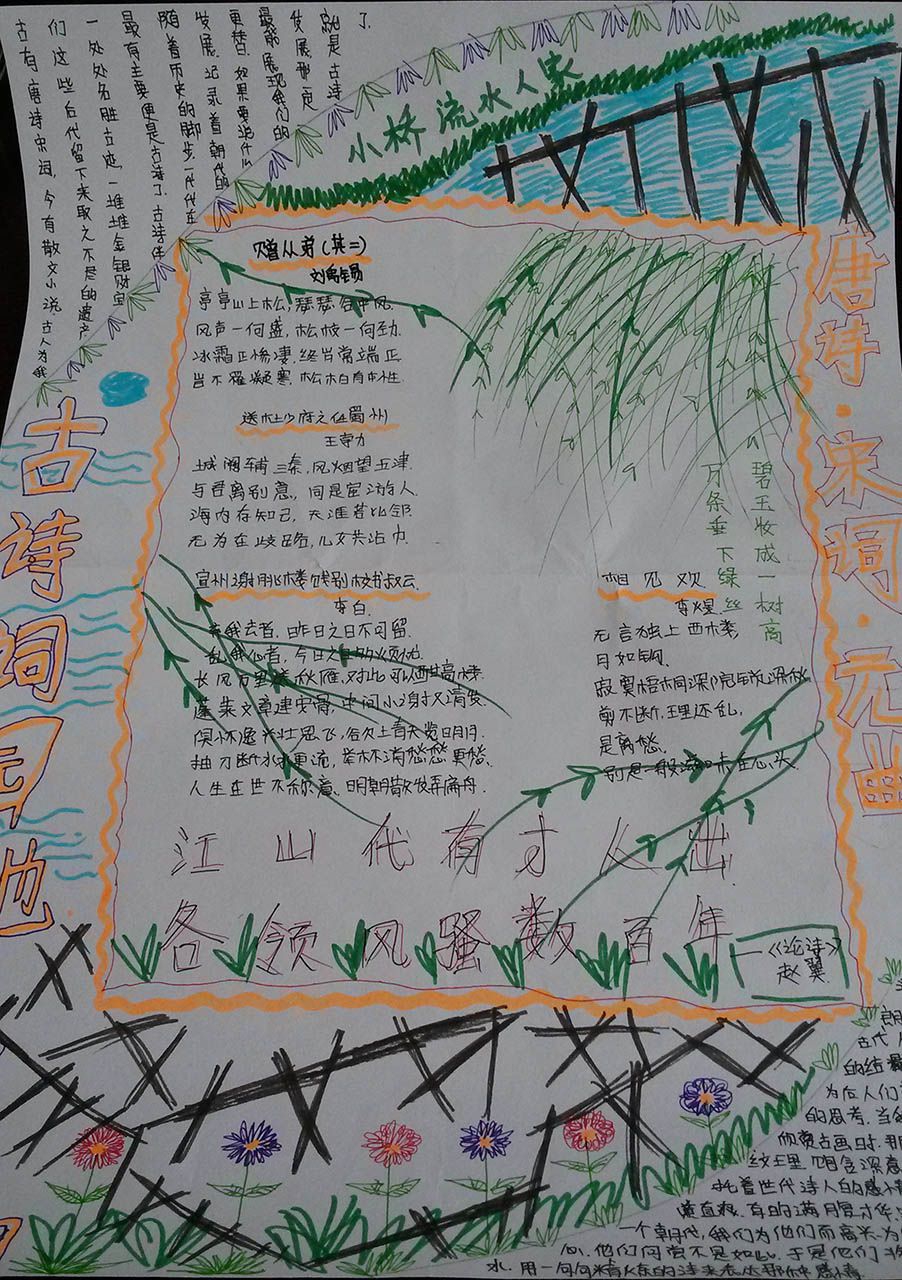 古有唐诗宋词，今有散文小说。古人为我
们这些后代留下来取之不尽的遗产
一处处名胜古迹，一堆堆金银财宝
最有主要便是古诗了。古诗伴
随着历史的脚步，一代代在
发展，记录着朝代的
更替。如果要说什么
最能展现我们的
发展，那一定
就是古诗
了
小桥流水人家
唐诗·宋词·元曲
古诗词园地
赠从弟(其二)
亭亭山上松，瑟瑟谷中风
风声一何盛，松枝一何劲
冰霜正惨凄，终岁常端正
岂不罹凝寒，松柏有本性
送杜少府之任蜀州
王勃
城阙辅三秦，风烟望五津
与君离别意，同是宦游人
海内存知己，天涯若比邻
无为在歧路，儿女共沾巾
宣州谢朓楼饯别校书叔云
李白
弃我去者，昨日之日不可留
乱我心者，今日之日多烦忧
长风万里送秋雁，对此可以酣高楼
蓬莱文章建安骨，中间小谢又清发
俱怀逸兴壮思飞，欲上青天览明月
抽刀断水水更流，举杯消愁愁更愁
人生在世不称意，明朝散发弄扁舟
碧玉妆成一树高
万条垂下绿丝
相见欢
李煜
无言独上西楼，
月如钩
寂寞梧桐深院锁清秋
剪不断，理还乱，
是离愁
别是一般滋味在心头
江山代有才人出
各领风骚数百年
—《论诗》
赵翼
古代
的结
为后人们
的思考，当
纹理，饱含深意
托着世代诗人的感情
一个朝代，我们为他们而高兴，为